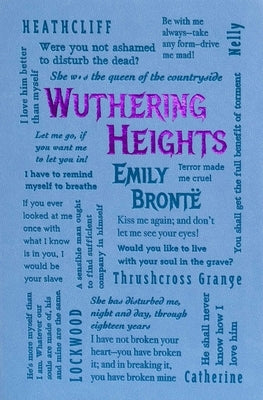 HEATHCLIFF
Be with me
always—take
any form—drive
me mad!
Nelly
I love him better
than myself
Were you not ashamed
to disturb the dead?
She was the queen of the countryside
WUTHERING
HEIGHTS
Let me go, if
you want me
to let you in!
EMILY
BRONTË
Terror made
me cruel
You shall get the full benefit of torment
I have to remind
myself to breathe
If you ever
looked at me
once with
what I know
is in you, I
would be
your slave
A sensible man ought
to find sufficient
company in himself
Kiss me again; and don't
let me see your eyes!
Would you like to live
with your soul in the grave?
Thrushcross Grange
He's more myself than
I am. Whatever our
souls are made of, his
and mine are the same.
LOCKWOOD
She has disturbed me,
night and day, through
eighteen years
I have not broken your
heart—you have broken
it; and in breaking it,
you have broken mine
He shall never
know how I
love him
Catherine